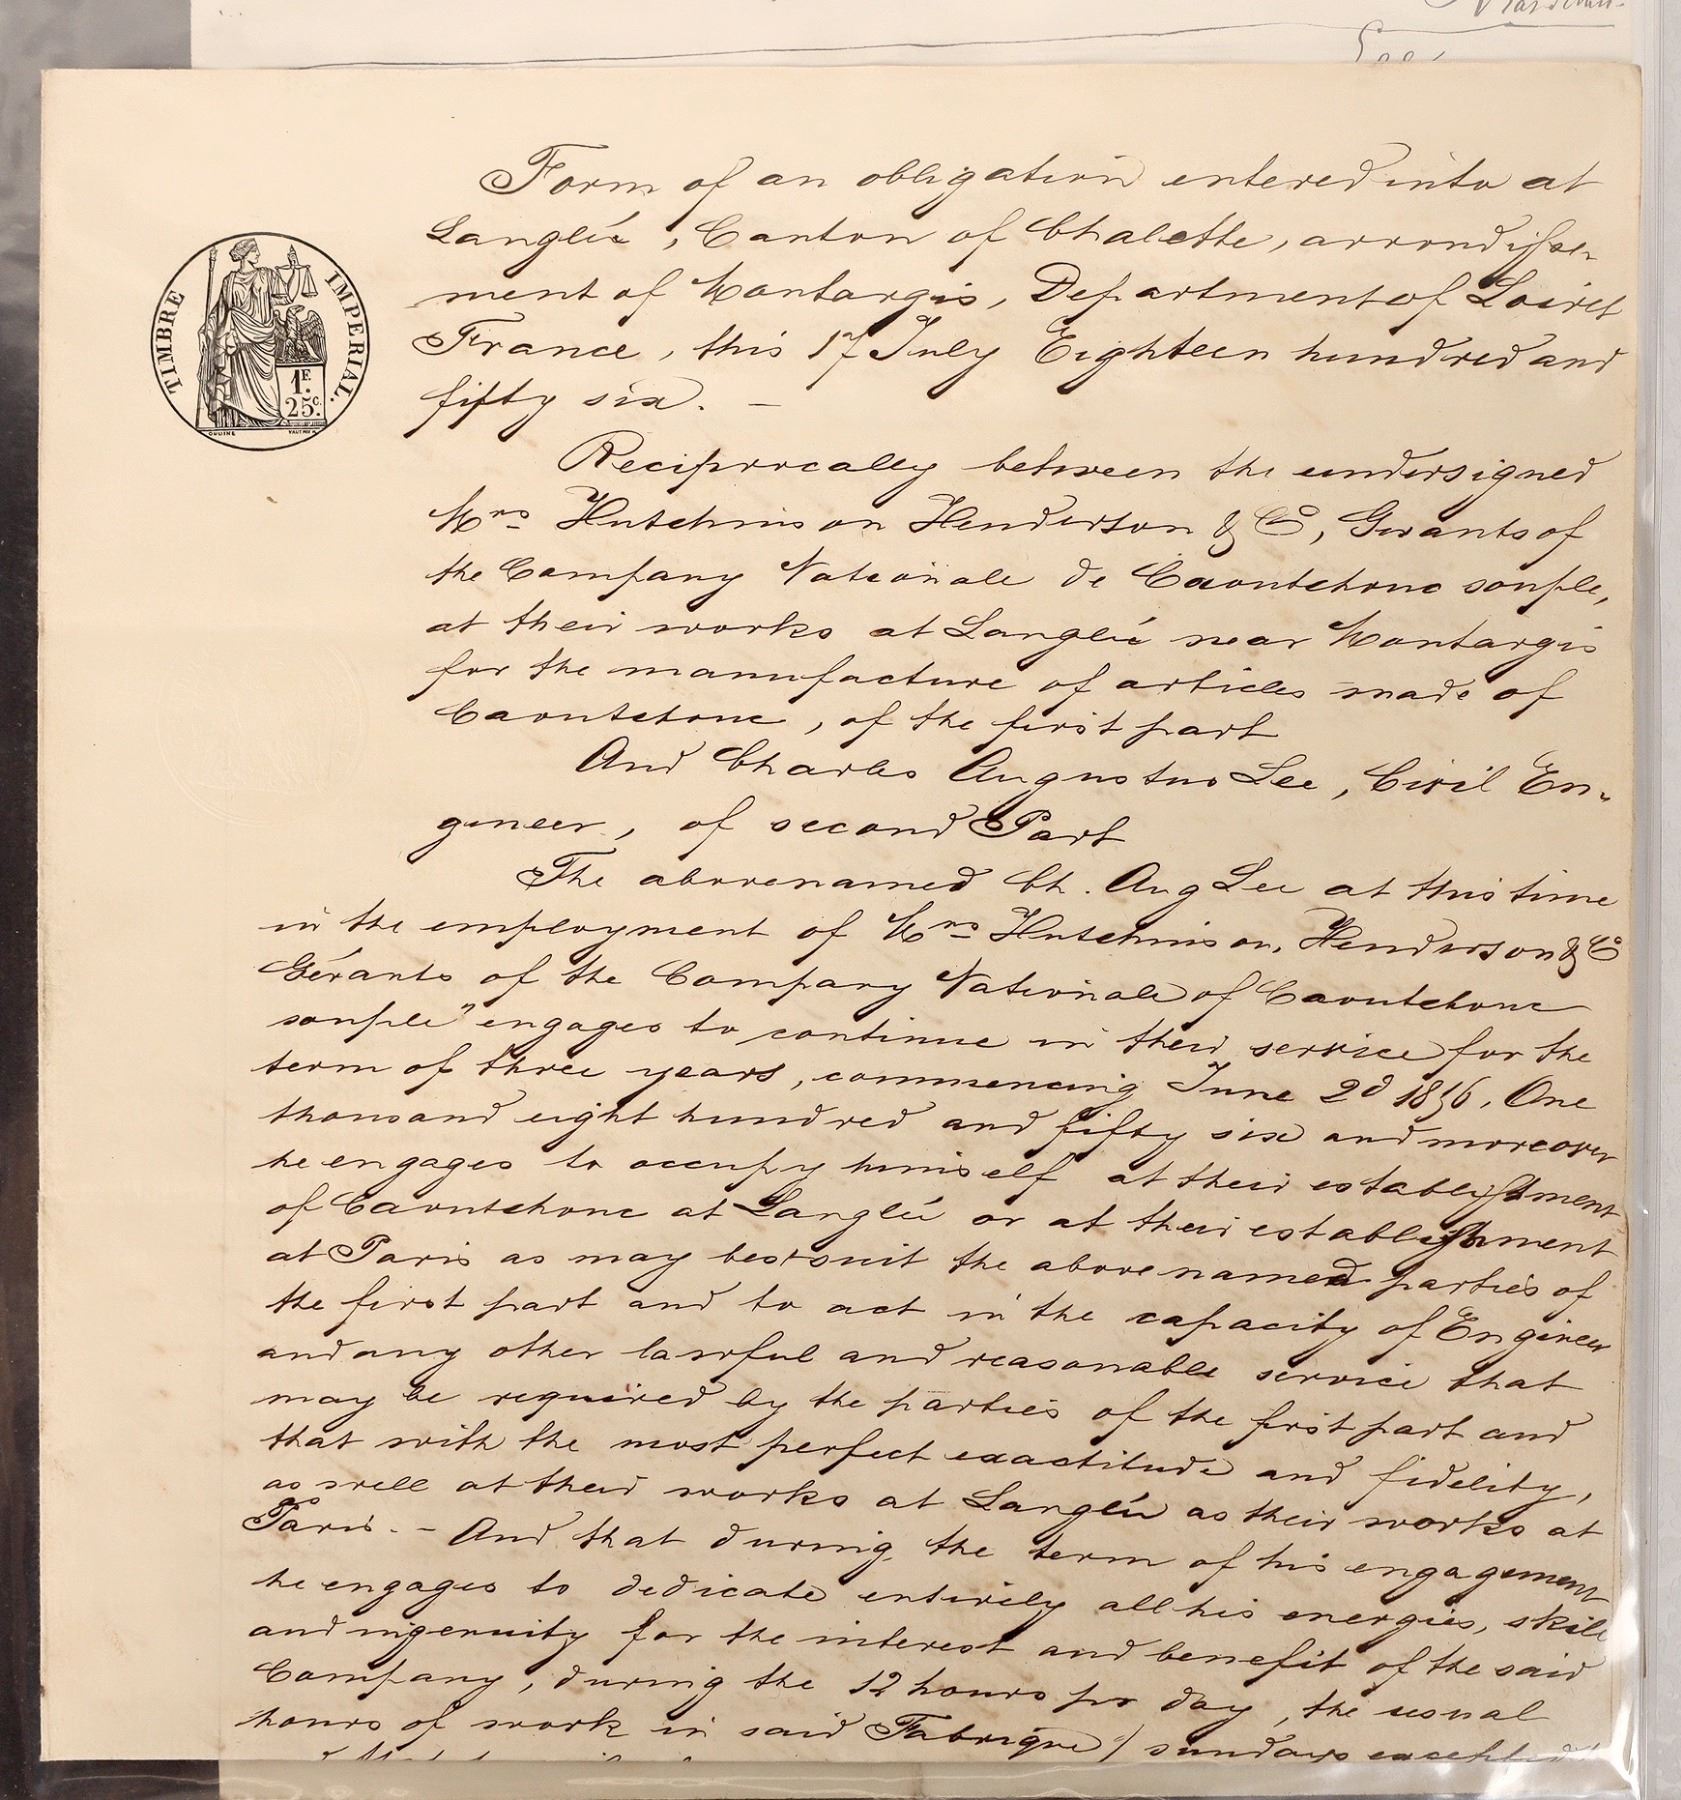 TIMBRE IMPERIAL.
1F.
25c.
Form of an obligation entered into at
Langlée, Canton of Chalette, arrondisse-
ment of Montargis, Department of Loiret
France, this 17 July Eighteen hundred and
fifty six. –
Reciprocally between the undersigned
Mrs Hutchinson Henderson & Co, Gerants of
the Company Nationale de Caoutchouc souple,
at their works at Langlée near Montargis
for the manufacture of articles made of
Caoutchouc, of the first part
And Charles Augustus Lee, Civil En-
gineer, of second Part
The abovenamed Ch. Aug Lee at this time
in the employment of Mrs Hutchinson, Henderson & Co
Gérants of the Company Nationale of Caoutchouc
souple" engages to continue in their service for the
term of three years, commencing June 2d 1856, One
thousand eight hundred and fifty six and moreover
he engages to occupy himself at their establishment
of Caoutchouc at Langlée or at their establishment
at Paris as may best suit the above named parties of
the first part and to act in the capacity of Engineer
and any other lawful and reasonable service that
may be required by the parties of the first part and
that with the most perfect exactitude and fidelity,
as well at their works at Langlée as their works at
Paris. – And that during the term of his engagement
he engages to dedicate entirely all his energies, skill
and ingenuity for the interest and benefit of the said
Company, during the 12 hours pr day, the usual
hours of work in said Fabrique, sundays excepted